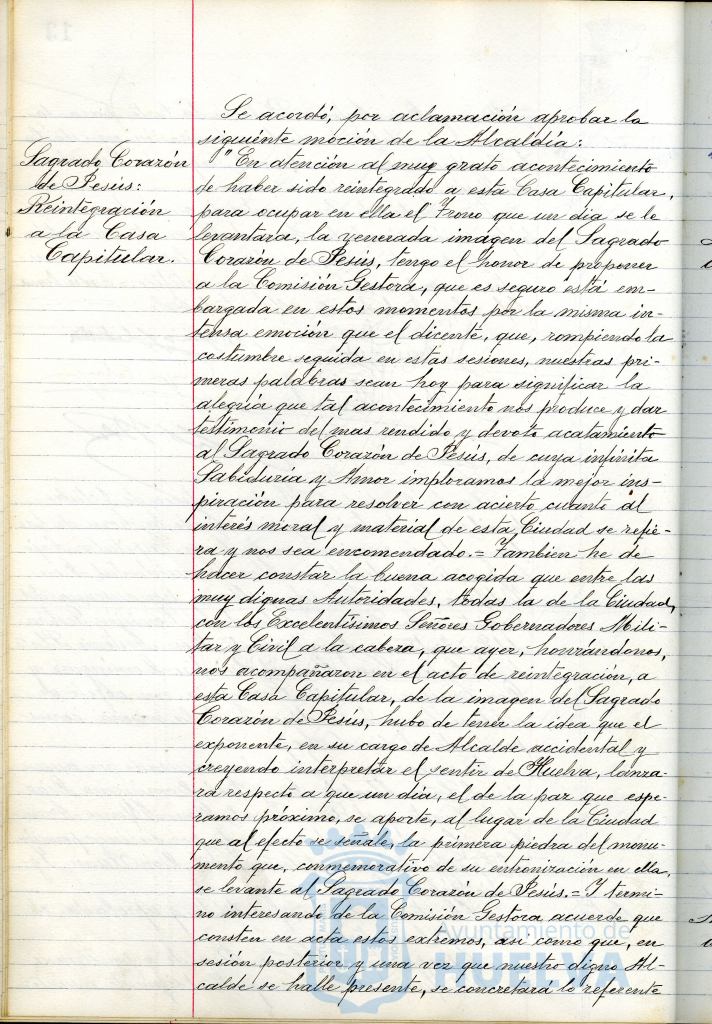 Se acordó, por aclamación aprobar la
siguiente moción de la Alcaldía:
Sagrado Corazón
de Jesús:
Reintegración
a la Casa
Capitular.
"En atención al muy grato acontecimiento
de haber sido reintegrado a esta Casa Capitular,
para ocupar en ella el Trono que un día se le
levantara, la venerada imagen del Sagrado
Corazón de Jesús, tengo el honor de proponer
a la Comisión Gestora, que es seguro está em-
bargada en estos momentos por la misma in-
tensa emoción que el dicente, que, rompiendo la
costumbre seguida en estas sesiones, nuestras pri-
meras palabras sean hoy para significar la
alegría que tal acontecimiento nos produce y dar
testimonio del mas rendido y devoto acatamiento
al Sagrado Corazón de Jesús, de cuya infinita
Sabiduría y Amor imploramos la mejor ins-
piración para resolver con acierto cuanto al
interés moral y material de esta Ciudad se refie-
ra y nos sea encomendado.= Tambien he de
hacer constar la buena acogida que entre las
muy dignas Autoridades, todas la de la Ciudad,
con los Excelentísimos Señores Gobernadores Mili-
tar y Civil a la cabeza, que ayer, honrándonos,
nos acompañaron en el acto de reintegración, a
esta Casa Capitular, de la imagen del Sagrado
Corazón de Jesús, hubo de tener la idea que el
exponente, en su cargo de Alcalde accidental y
creyendo interpretar el sentir de Huelva, lanza-
ra respecto a que un día, el de la paz que espe-
ramos próximo, se aporte, al lugar de la Ciudad
que al efecto se señale, la primera piedra del monu-
mento que, conmemorativo de su entronización en ella,
se levante al Sagrado Corazón de Jesús.= Y termi-
no interesando de la Comisión Gestora acuerde que
consten en acta estos extremos, así como que, en
sesión posterior y una vez que nuestro digno Al-
calde se halle presente, se concretará lo referente
Ayuntamiento de
HUELVA